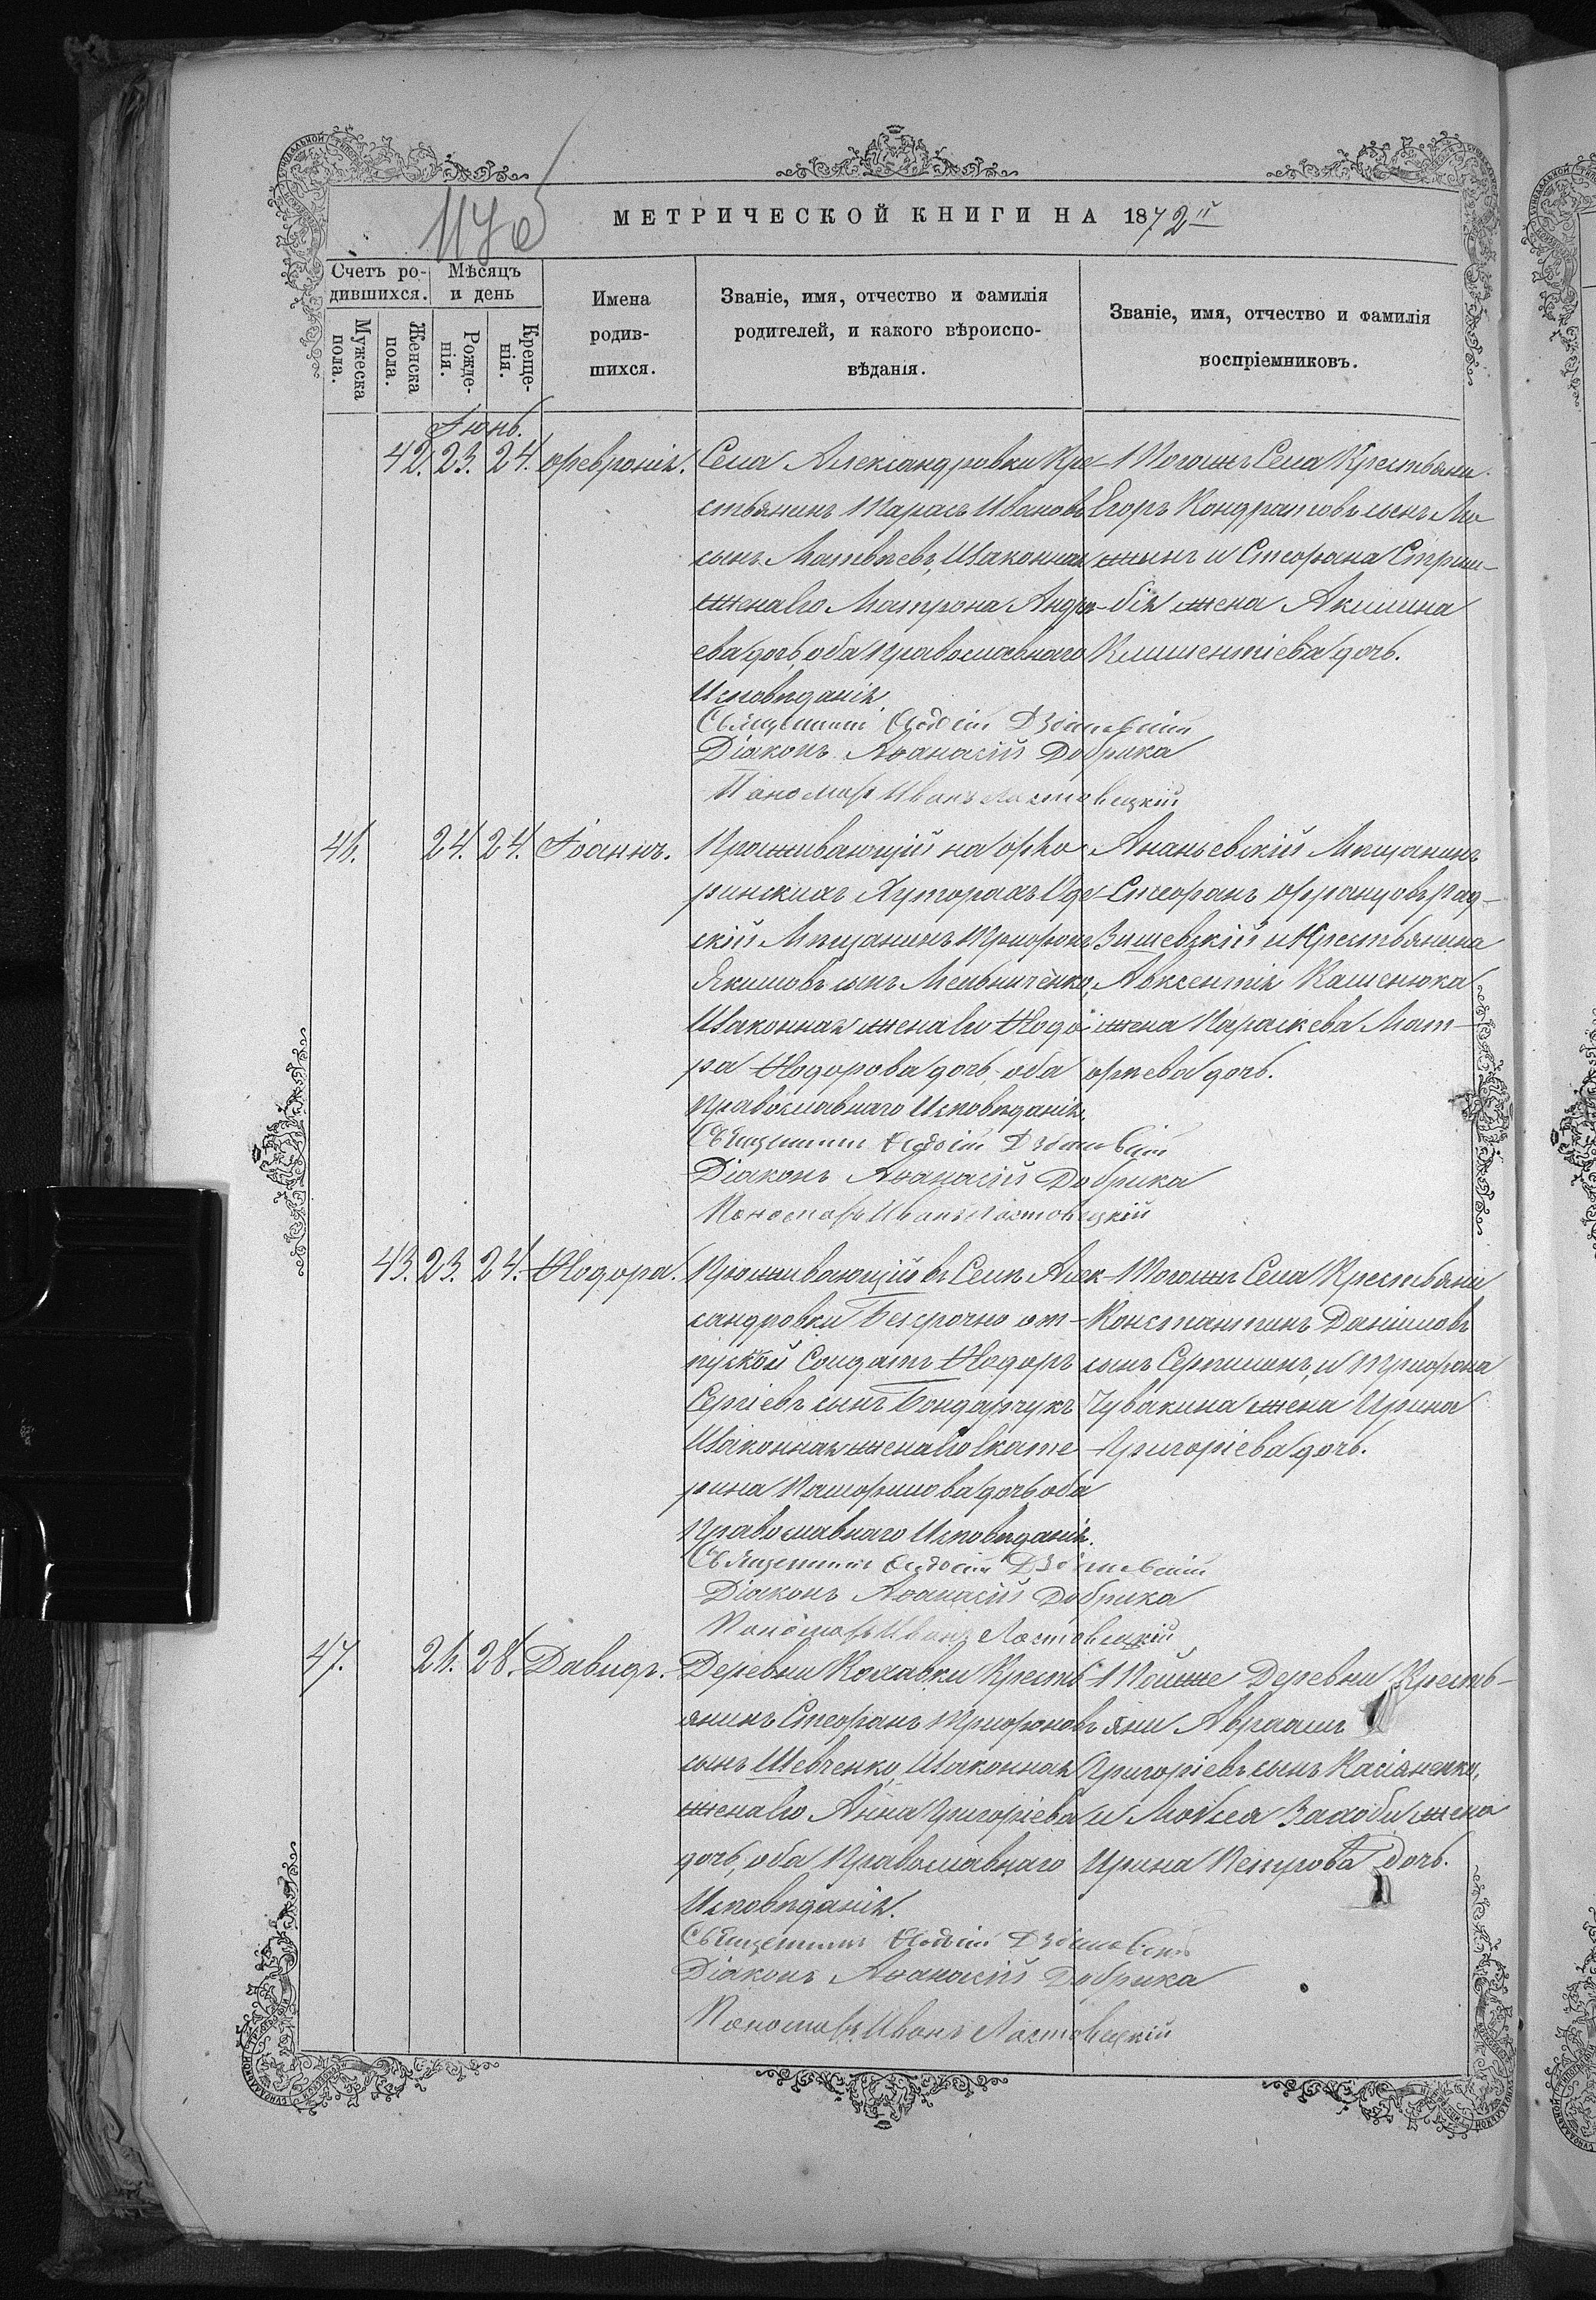 МЕТРИЧЕСКОЙ КНИГИ НА 1872
Счетъ ро-
дившихся.
Мѣсяцъ
и день
Имена
родив-
шихся.
Званіе, имя, отчество и фамилія
родителей, и какого вѣроиспо-
вѣданія.
Званіе, имя, отчество и фамилія
воспріемниковъ.
Мужеска
пола.
Женска
пола.
Рожде-
нія.
Креще-
нія.
Іюнь.
42. 23. 24. Февронія.
Села Александровки Кре-
стьянинъ Тарасъ Ивановъ
сынъ Матвѣевъ, Изаконная
жена Его Матрона Андре-
ева дочь, оба православнаго
Исповѣданія.
Священникъ Ѳеодосій
Діаконъ Аѳанасій Добрика
Пономарь Иванъ Ластовецкій
Тогожъ Села Крестьяни
Егоръ Кондратовъ сынъ
и Стефана
жена Акилина
Климентіева дочь.
46. 24. 24. Іоаннъ.
Проживающій на
Хуторахъ Оде-
скій Мѣщанинъ Трифонъ
Якимовъ сынъ Мельниченко,
Изаконная жена Его Ѳеодо-
ра Ѳеодорова дочь, оба
Православнаго Исповѣданія.
Священникъ Ѳеодосій
Діаконъ Аѳанасій Добрика
Пономарь Иванъ Ластовецкій
Ананьевскій Мѣщанинъ
Стефанъ Францовъ Рад-
зишевскій и Крестьянина
Авксентія Кашенюка
жена Параскева Мат-
фѣева дочь.
43. 23. 24. Ѳеодора.
Проживающій въ Селѣ Алек-
сандровки Безсрочно от-
пуской Солдатъ Ѳеодоръ
Сергіевъ сынъ Бондарчукъ
Изаконная жена Его Екате-
рина Памфилова дочь оба
Православнаго Исповѣданія.
Священникъ Ѳеодосій
Діаконъ Аѳанасій Добрика
Пономарь Иванъ Ластовецкій
Тогожъ Села Крестьяни
Константинъ Даніиловъ
сынъ и Трифона
Чувакина жена Ирина
Григоріева дочь.
47. 26. 28. Давидъ.
Деревни Кесть-
янинъ Стефанъ Трифоновъ
сынъ Шевченко, Изаконная
жена Его Анна Григоріева
дочь, оба Православнаго
Исповѣданія.
Священникъ Ѳеодосій
Діаконъ Аѳанасій Добрика
Пономарь Иванъ Ластовецкій
Тойже Деревни Кресть-
яни Авраамъ
Григоріевъ сынъ Касіяненко,
и Моѵсея жена
Ирина Петрова дочь.